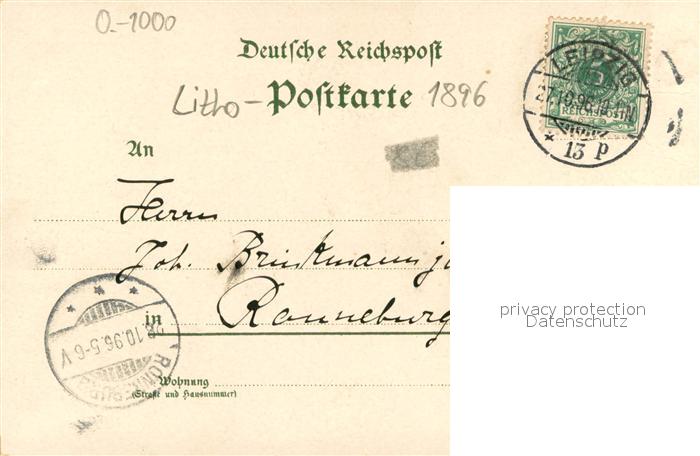 O.-1000
Deutsche Reichspost
Litho - Postkarte 1896
LEIPZIG
27.10.96.
REICHSPOST
* 13 p
An
Herrn
Joh. Brinkmann
in Ronneburg
28.10.96.5-6V
privacy protection
Datenschutz
Wohnung
(Straße und Hausnummer)